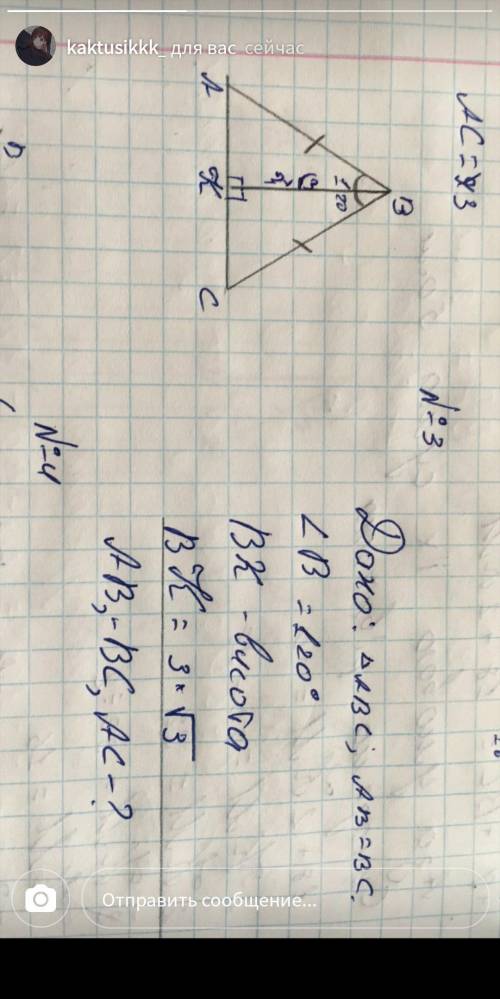 kaktusikkk_ для вас сейчас
AC = 3
A
B
120
K
C
№3
Дано: △ABC, AB=BC.
∠B = 120°
BK - висота
BK = 3*√3
AB, BC, AC - ?
№4
Отправить сообщение...